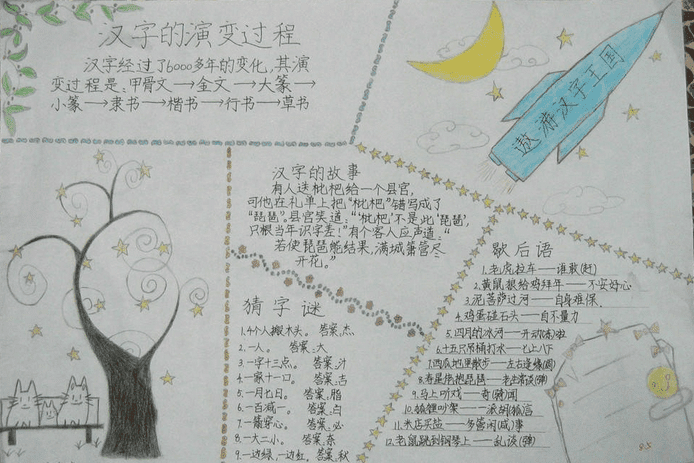 汉字的演变过程
汉字经过了6000多年的变化,其演
变过程是:甲骨文→金文→大篆→
小篆→隶书→楷书→行书→草书
遨游汉字王国
汉字的故事
有人送枇杷给一个县官,
可他在礼单上把“枇杷”错写成了
“琵琶”。县官笑道:“‘枇杷’不是此‘琵琶’,
只恨当年识字差!”有个客人应声道:“
若使琵琶能结果,满城箫管尽
开花。”
猜字谜
1.4个人搬木头。 答案:杰
2.一人。 答案:大
3.一字十三点。 答案:汁
4.一家十一口。 答案:吉
5.一月七日。 答案:脂
6.一百减一。 答案:白
7.一箭穿心。 答案:必
8.一大二小。 答案:奈
9.一边绿,一边红。 答案:秋
歇后语
1.老虎拉车——谁敢(赶)
2.黄鼠狼给鸡拜年——不安好心
3.泥菩萨过河——自身难保、
4.鸡蛋碰石头——自不量力
5.四月的冰河——开动(冻)啦
6.十五只吊桶打水——七上八下
7.西瓜地里散步——左右逢缘(圆)
8.寿星抱琵琶——老生常谈(弹)
9.马上听戏——奇(骑)闻
10.狐狸吵架——一派胡(狐)言
11.米店买盐——多管闲(咸)事
12.老鼠跳到钢琴上——乱谈(弹)